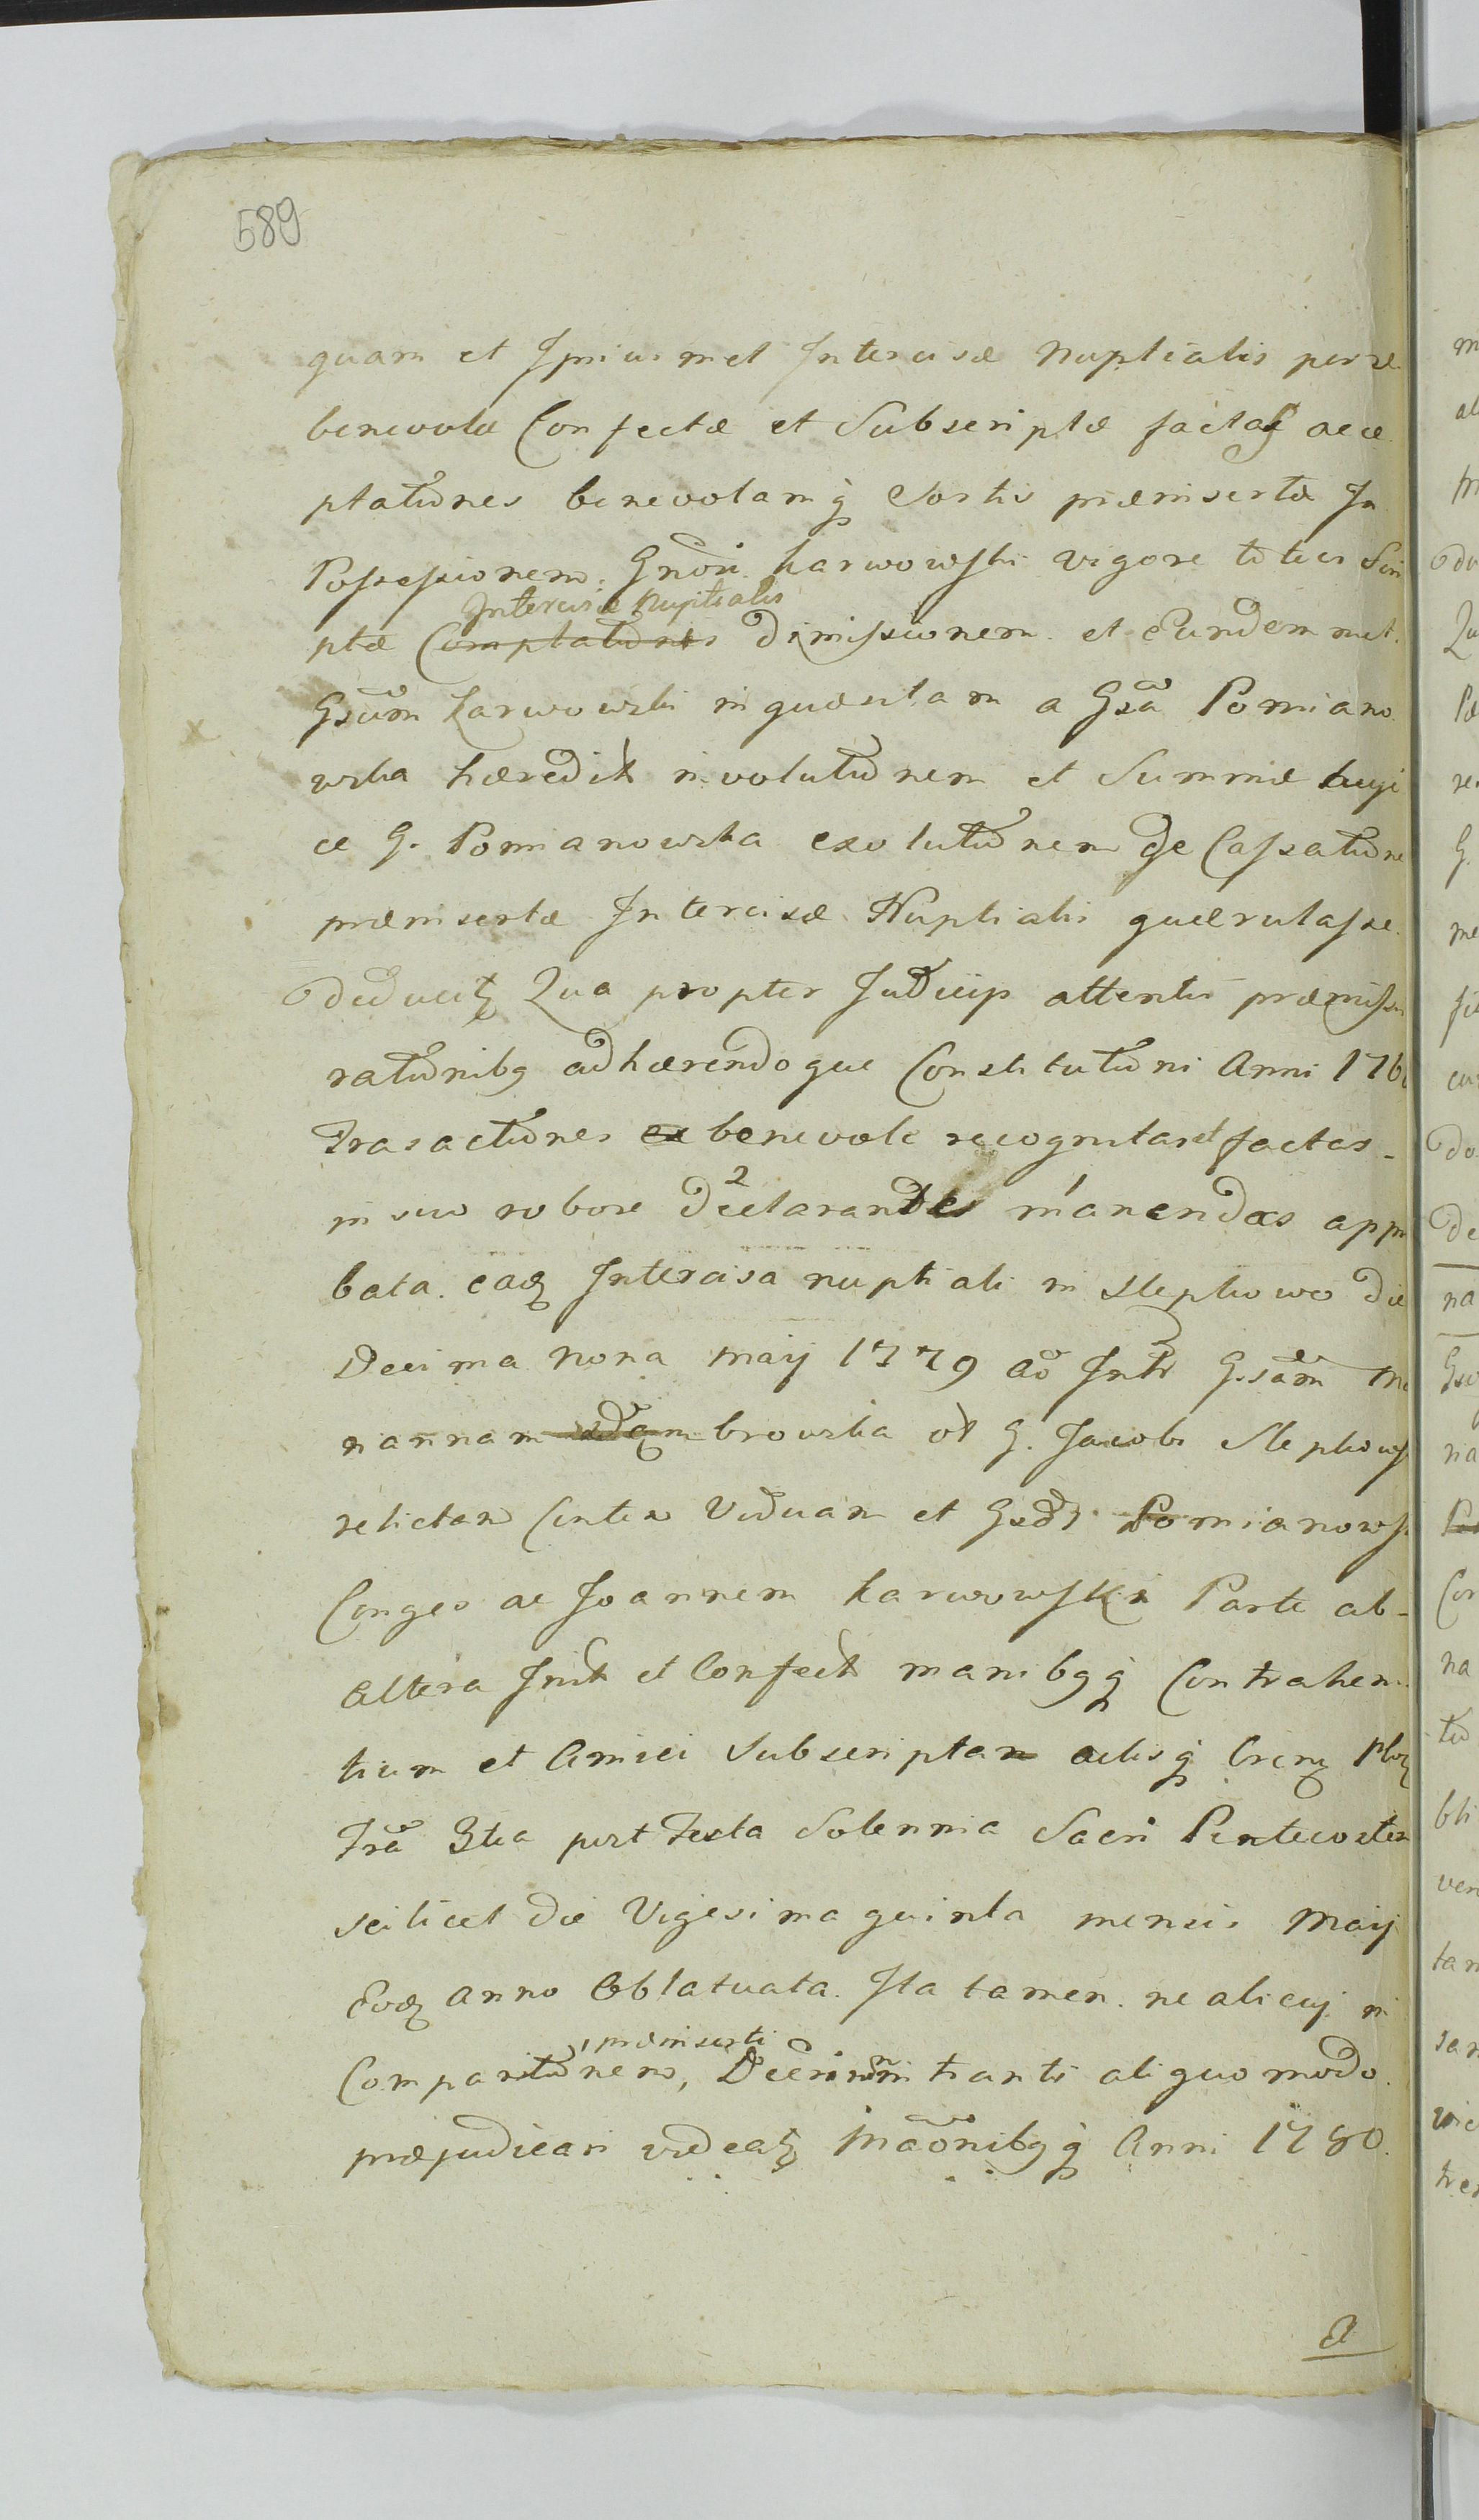 589
quam et Ipsiusmet Intercisæ Nuptialis per se
benevolæ Confectæ et Subscriptæ factas acce
ptatiōnes benevolamq̨ Sortis præinsertæ In
Possessionem. Gnōsi Karwowski vigore totius Scri
Intercisæ Nuptialis
ptæ Complatiōnis dimissionem et Eundemmet
Gsūm Karwowski inquæsitam a Gsā Pomiano
wska hæredit involutiōnem et Summæ huj
ce G. Pomianowska exolutiōnem de Cassatiōne
præinsertæ Intercisæ Nuptialis quærulasse
deducit Qua propter Judicijs attentis præmissis
ratiōnibq adhærendoque Constitutiōni Anni 176
Trasactiōnes ex benevole recognitas et factas
in suo robore declarandes manendas appro
bata. eaq Intercisa nuptiali in Slepkowo die
Decima Nona Maij 1779 aō Inter G.sām Ma
riannam browska G. Jacobi Slepkows
relictam Viduam et Pomianows
Conges ac Joannem Karwowski Parte ab
altera Init et Confect manibqq̨ Contrahen
tium et Amici Subscriptam actisq̨
Frā 3tia post Festa Solennia Sacri Pentecostes
scilicet die Vigesima quinta mensis Maij
Eoq anno Oblatuata. Ita tamen. ne alicuj in
præinserti
Comparitiōnem, aliquo modo
præjudicari videat Anni 1780.
a